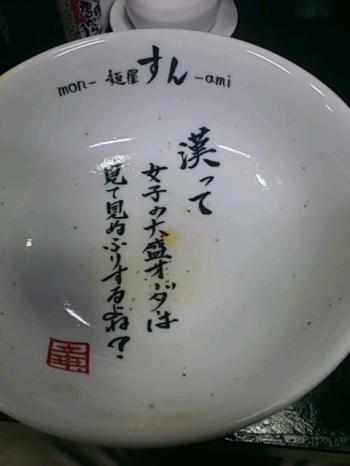 mon- 麺屋 すん -ami
漢って
女子の大盛オーダは
見て見ぬふりするよね？